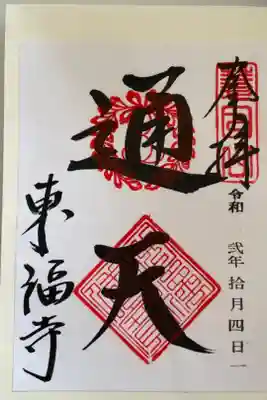 奉拝
令和 弐年 拾月 四日
通天
東福寺